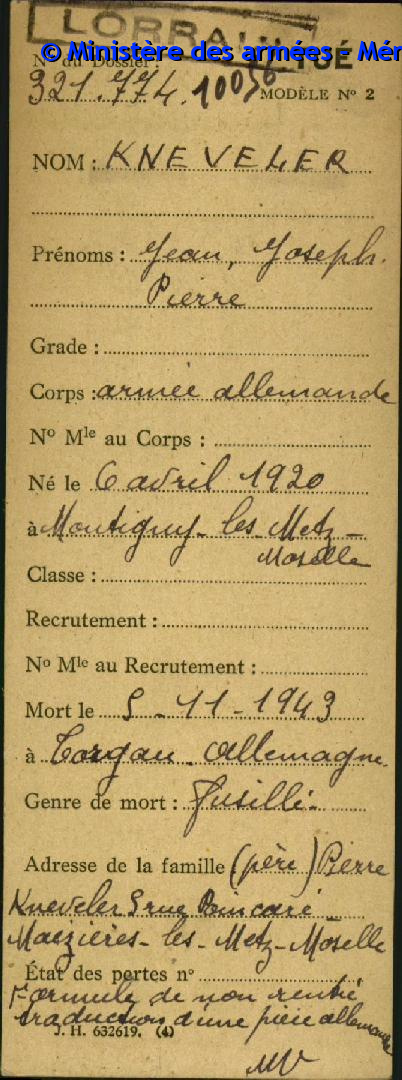 LORRAIN
© Ministère des armées - Mém
TUÉ
N° du Dossier :
321.774. 10050
MODÈLE N° 2
NOM : KNEVELER
Prénoms : Jean, Joseph.
Pierre
Grade :
Corps : armée allemande
N° Mle au Corps :
Né le 6 avril 1920
à Montigny-les-Metz-
Moselle
Classe :
Recrutement :
N° Mle au Recrutement :
Mort le 5-11-1943
à Torgau. Allemagne
Genre de mort : Fusillé.
Adresse de la famille (père) Pierre
Kneveler 5 rue Poincaré
Maizières-les-Metz-Moselle
État des pertes n°
Formule de non rentré
traduction d'une pièce allemande
J. H. 632619. (4)